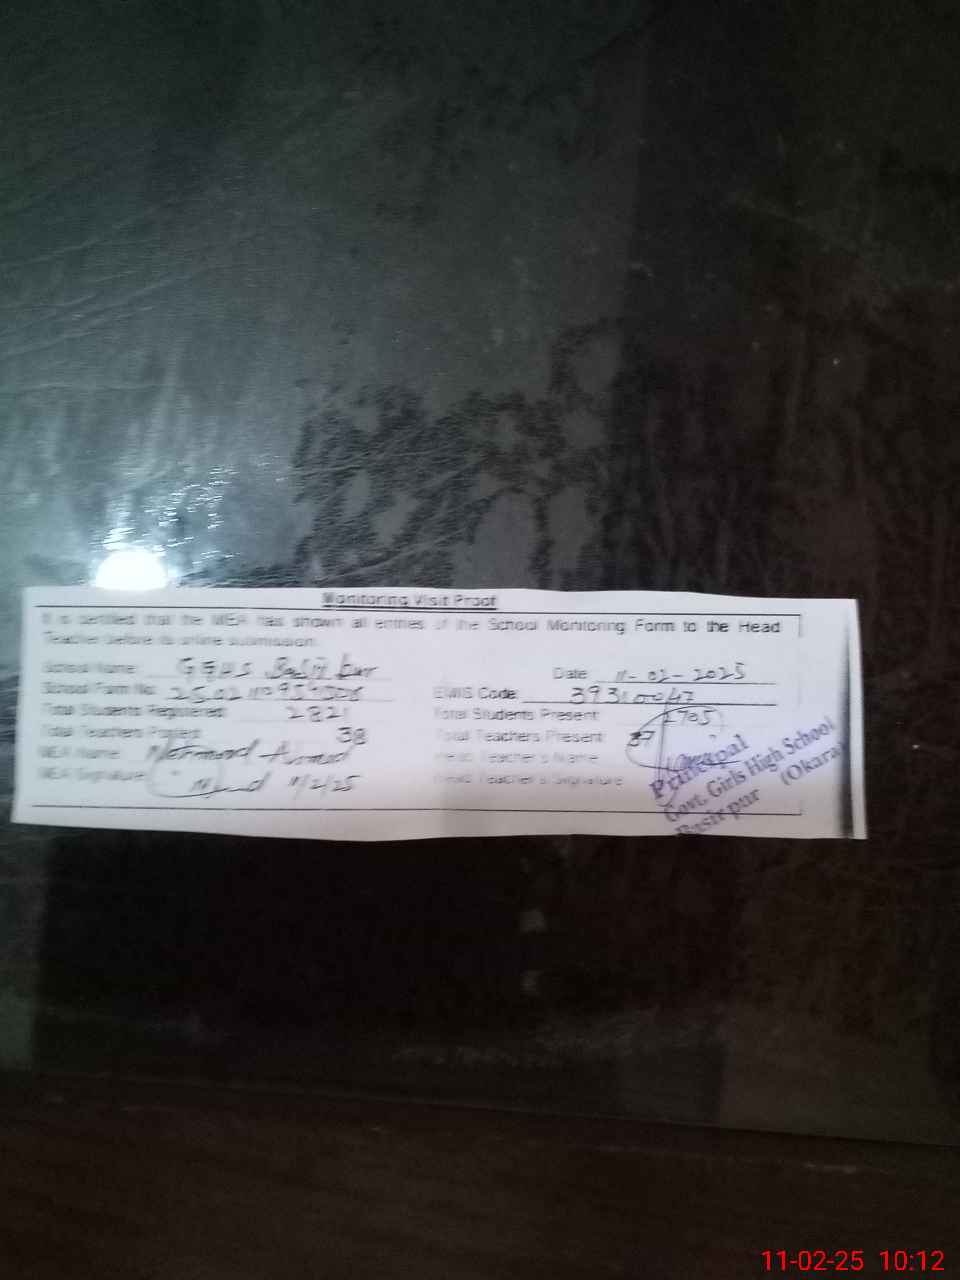 Monitoring Visit Proof
It is certified that the MEA has shown all entries of the School Monitoring Form to the Head
Teacher before its online submission.
School Name: GGHS Basir pur Date: 11-02-2025
School Form No: EMIS Code: 39310047
Total Students Registered: 2821 Total Students Present:
Total Teachers Posted: 38 Total Teachers Present: 37
MEA Name: Ahmad Head Teacher's Name
MEA Signature 11/2/25 Head Teacher's Signature
Principal
Govt. Girls High School
Basir pur (Okara)
11-02-25 10:12